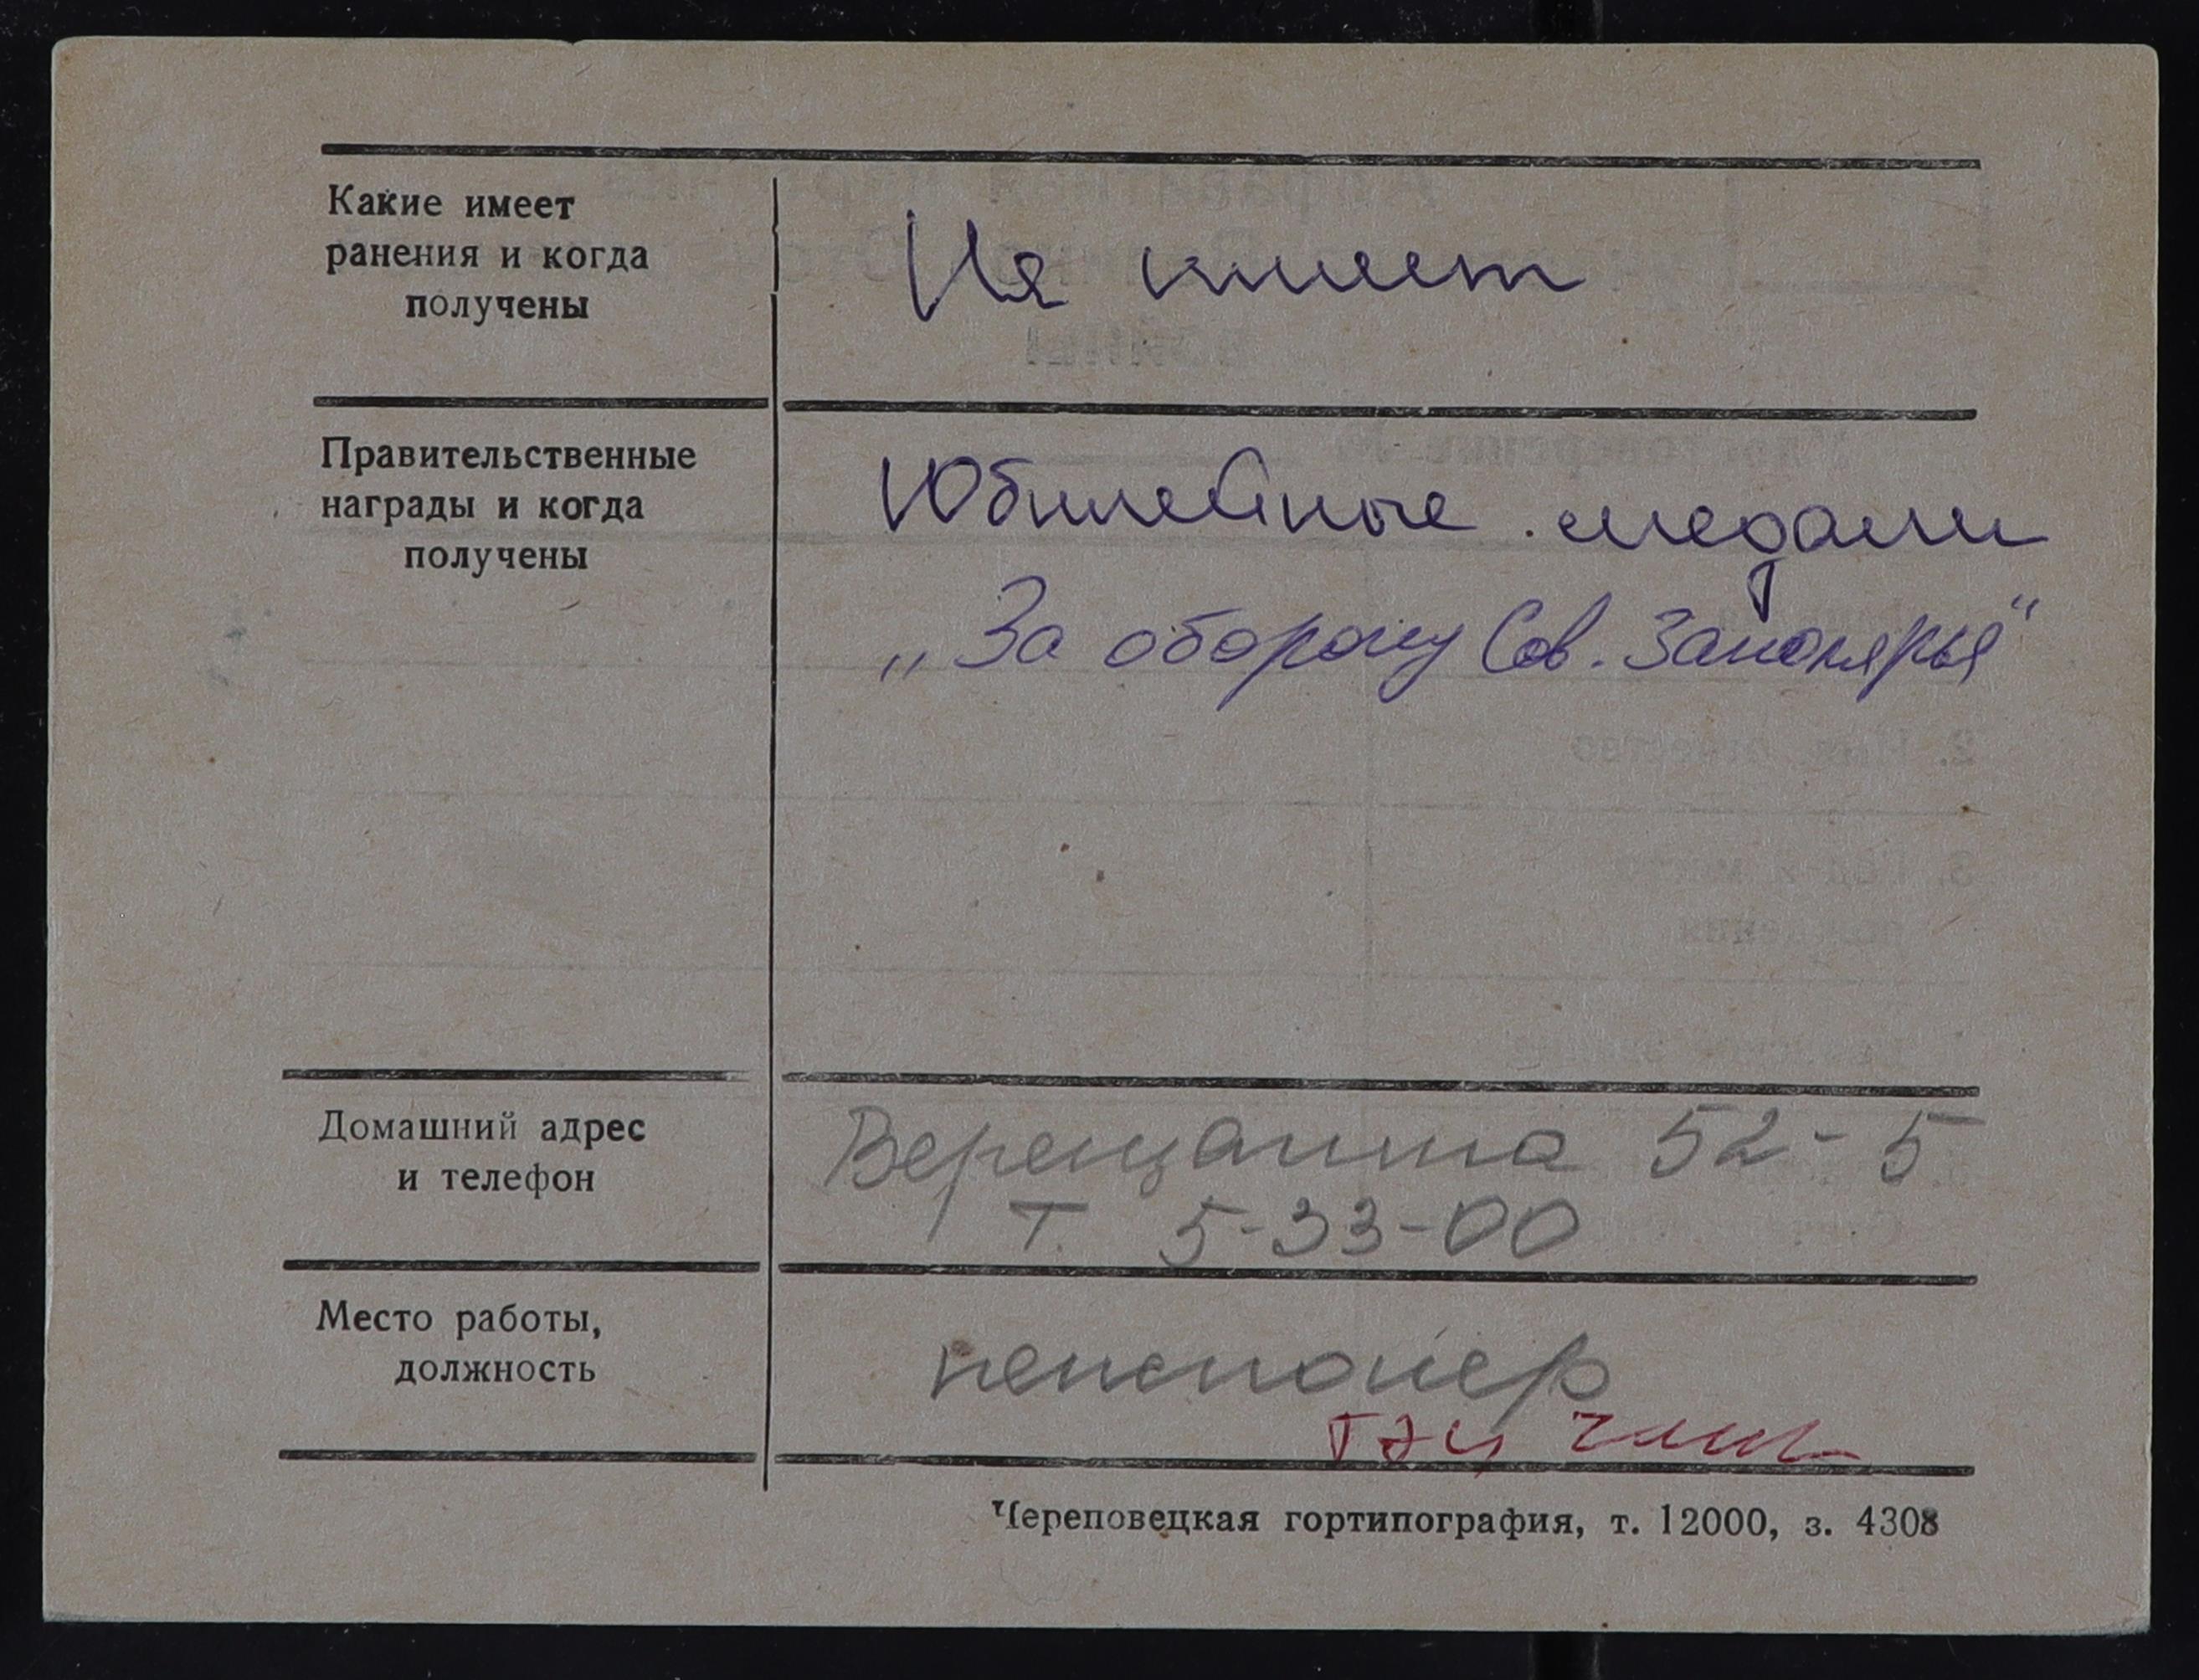 Какие имеет
ранения и когда
получены
Не имеет
Правительственные
награды и когда
получены
Юбилейные медали
„За оборону Сов. Заполярья“
Домашний адрес
и телефон
Верещагина 52-5
т. 5-33-00
Место работы,
должность
пенсионер
Череповецкая гортипография, т. 12000, з. 4308